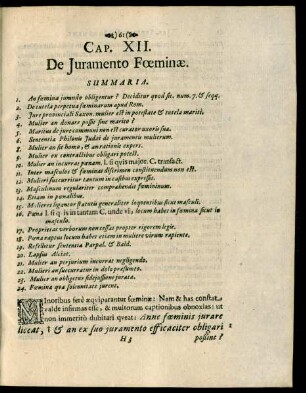 61
CAP. XII.
De Juramento Fœminæ.
SUMMARIA.
1. An fœmina jurando obligentur? Deciditur quod sic. num. 7. & seqq.
2. De tutela perpetua fœminarum apud Rom.
3. Jure provinciali Saxon. mulier est in potestate & tutela mariti.
4. Mulier an donare possit sine marito?
5. Maritus de jure communi non est curator uxoris suæ.
6. Sententia Philonis Judæi de juramento mulierum.
7. Mulier an sit homo, & an rationis capax.
8. Mulier ex contractibus obligari potest.
9. Mulier an incurrat pœnam, l. si quis major. C. transact.
11. Inter masculos & fœminas discrimen constituendum non est.
12. Mulieri succurritur tantum in casibus expressis.
13. Masculinum regulariter comprehendit fœmininum.
14. Etiam in pœnalibus.
15. Mulieres ligantur statutis generaliter loquentibus sicut masculi.
16. Pœna l. si quis in tantum C. unde vi, locum habet in fœmina sicut in
masculo.
17. Proprietas verborum non cessat propter rigorem legis.
18. Pœna raptus locum habet etiam in muliere virum rapiente.
19. Refellitur sententia Parpal. & Bald.
20. Lapsus Alciat.
21. Mulier an perjurium incurrat negligendo.
22. Mulieri an succurratur in dolo præsumto.
23. Mulier an obligetur fidejussioni jurata.
24. Fœmina qua solennitate juret.
MInoribus ferè æquiparantur fœminæ: Nam & has constat
valde infirmas esse, & multorum captionibus obnoxias: ut
non immeritò dubitari queat: Anne fœminis jurare
liceat, 1 & an ex suo juramento efficaciter obligari
H 3 possint?